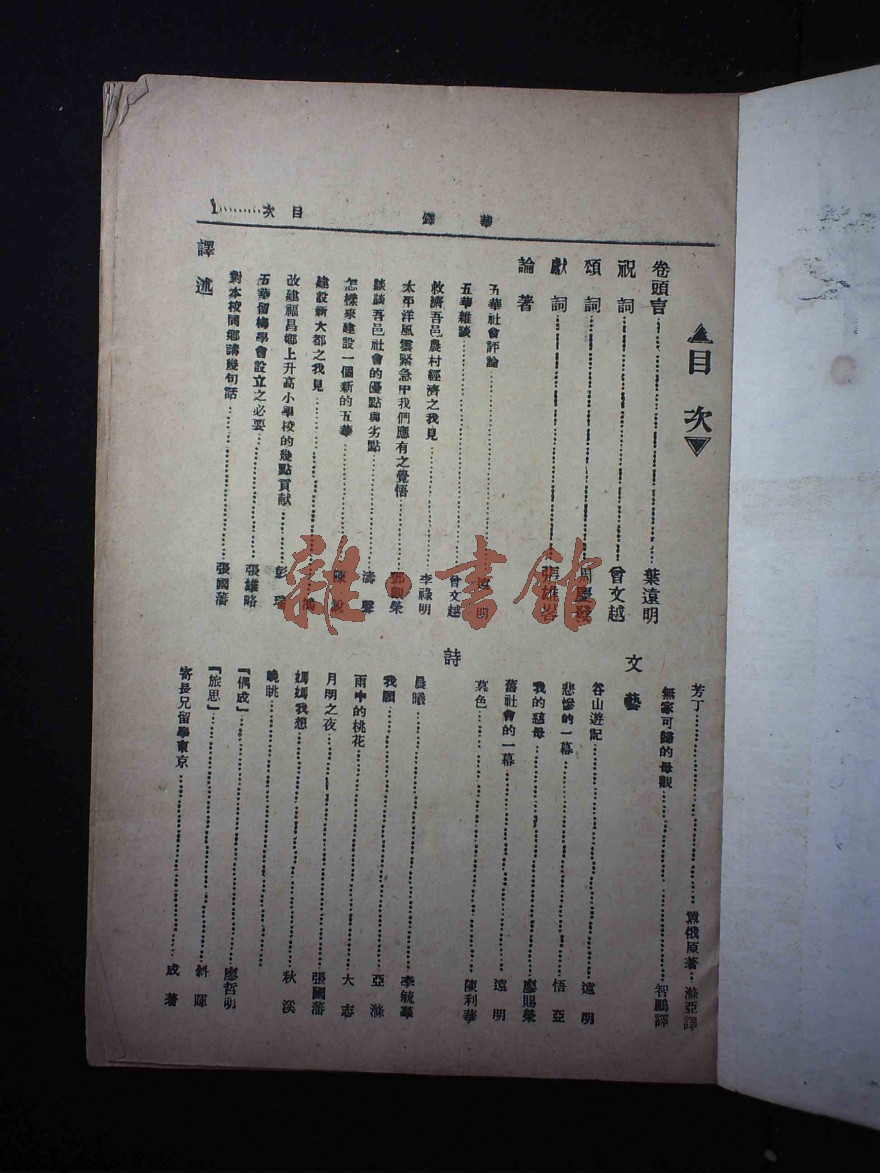 華鐸
目次………1
▲目次▼
卷頭言……葉遠明
祝詞……曾文越
頌詞……周慶發
獻詞……張雄岩
論著
五華社會評論……遠明
五華雜談……曾文越
救濟吾邑農村經濟之我見……李祿明
太平洋風雲緊急中我們應有之覺悟……鄧觀榮
談談吾邑社會的優點與劣點……濤聲
怎樣來建設一個新的五華……陳毅
建設新大都之我見……鴻
改建福昌鄉上升高小學校的幾點貢獻……彭瑞
五華留梅學會設立之必要……張雄略
對本校同鄉講幾句話……張國藩
譯述
芳丁……囂俄原著……滌亞譯
無家可歸的母觀……智鵬譯
文藝
谷山遊記……遠明
悲慘的一幕……悟亞
我的慈母……廖賜榮
舊社會的一幕……遠明
暮色……陳利華
詩
晨曦……李毓華
我願……亞滌
雨中的桃花……大志
月明之夜……張國藩
媽媽我想……秋溪
晚眺……
『偶成』……廖哲明
『旅思』……斜暉
寄長兄留學東京……成著
雜·書館